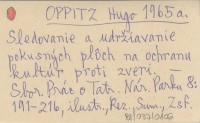 OPPITZ Hugo 1965 a.
Sledovanie a udržiavanie
pokusných plôch na ochranu
kultúr proti zveri.
Sbor. Prác o Tatr. Nár. Parku 8:
191-216, ilustr., Rez., Sum., Zsf.